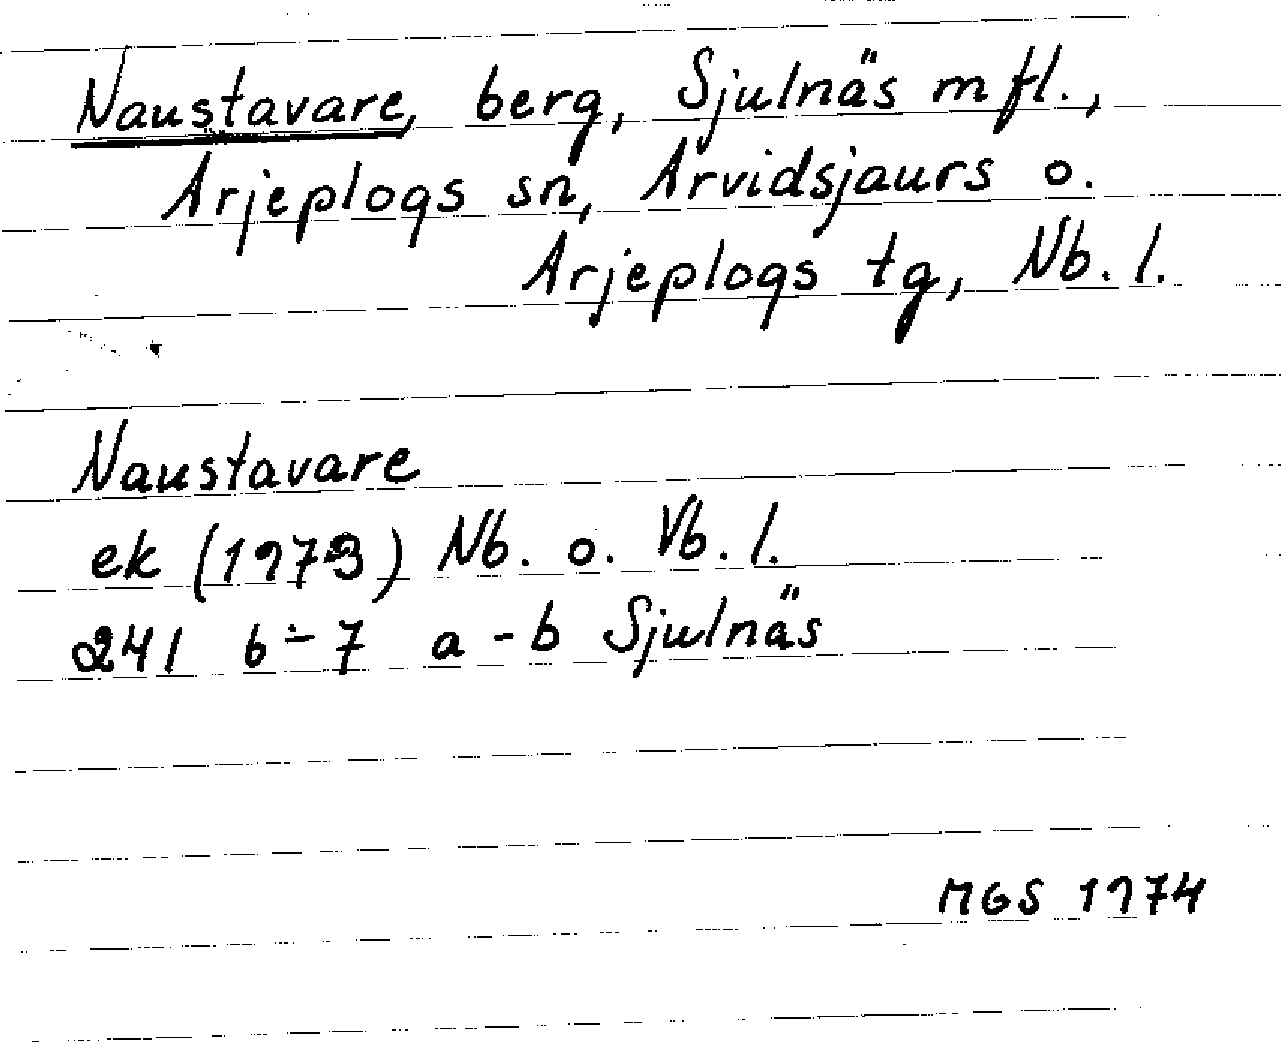 Naustavare, berg, Sjulnäs m fl.,
Arjeplogs sn, Arvidsjaurs o.
Arjeplogs tg, Nb. l.
Naustavare
ek (1973) Nb. o. Vb. l.
241 6-7 a-b Sjulnäs
MGS 1974